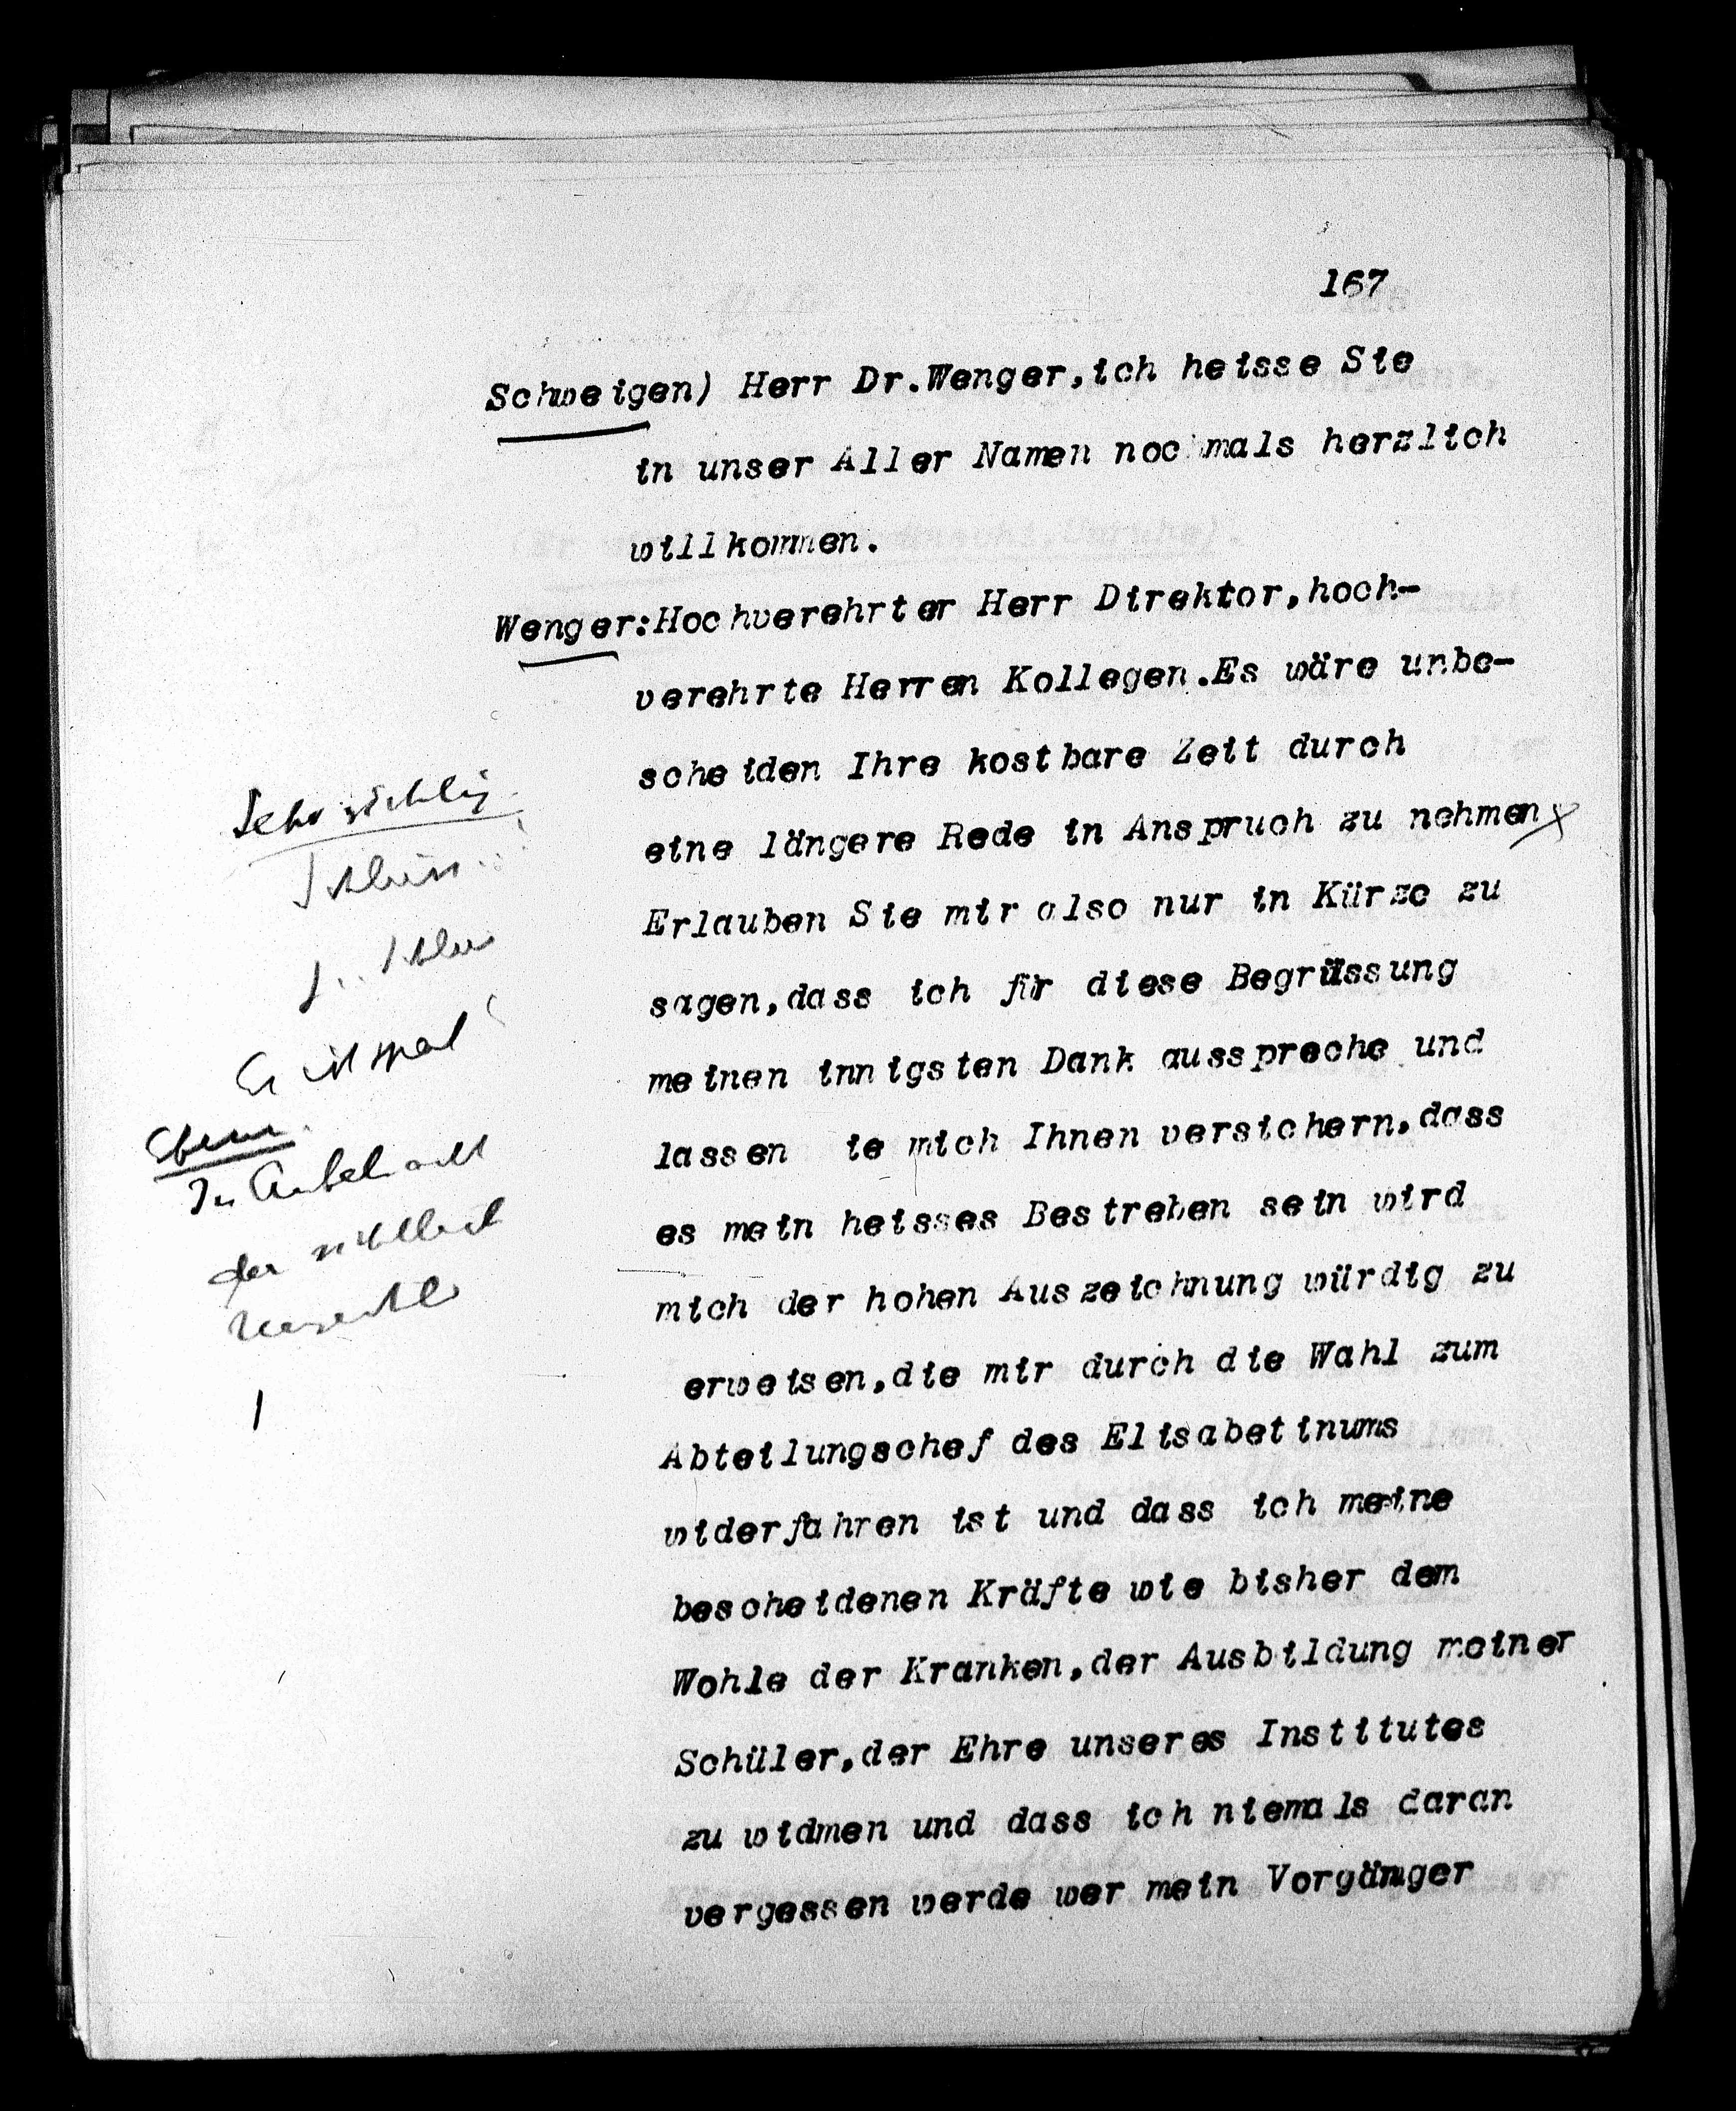 167
Schweigen) Herr Dr.Wenger,ich heisse Sie
in unser Aller Namen noc mals herzlich
willkommen.
Wenger:Hochverehrter Herr Direktor,hoch-
verehrte Herren Kollegen.Es wäre unbe-
scheiden Ihre kostbare Zeit durch
eine längere Rede in Anspruch zu nehmen
Erlauben Sie mir also nur in Kürze zu
sagen,dass ich für diese Begrüssung
meinen innigsten Dank ausspreche und
lassen ie mich Ihnen versichern,dass
es mein heisses Bestreben sein wird
mich der hohen Auszeichnung würdig zu
erweisen,die mir durch die Wahl zum
Abteilungschef des Elisabetinums
widerfahren ist und dass ich meine
bescheidenen Kräfte wie bisher dem
Wohle der Kranken,der Ausbildung meiner
Schüler,der Ehre unseres Institutes
zu widmen und dass ich niemals daran
vergessen werde wer mein Vorgänger
Sehr richtig
Es ist spät
In Anbetracht
der